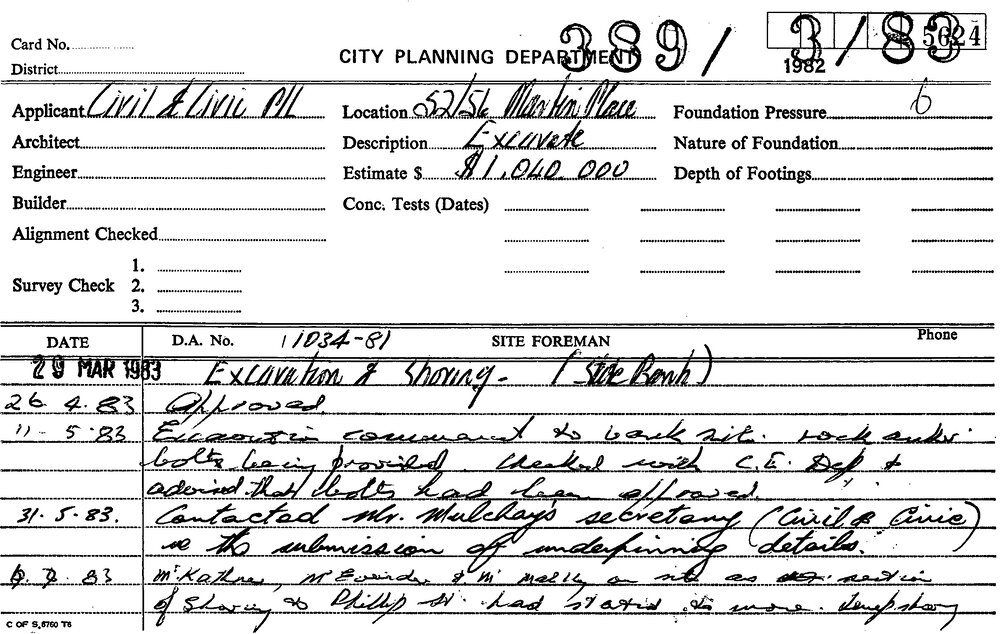 Card No.
District
CITY PLANNING DEPARTMENT
389/3/83
5624
1982
Applicant Civil & Civic P/L
Location 52/56 Martin Place
Foundation Pressure 6
Architect
Description Excavate
Nature of Foundation
Engineer
Estimate $ $1,040,000
Depth of Footings
Builder
Conc. Tests (Dates)
Alignment Checked
Survey Check
1.
2.
3.
DATE
D.A. No. 11034-81
SITE FOREMAN
Phone
29 MAR 1983 Excavation & Shoring - (State Bank)
26.4.83 Approved.
11-5-83 Excavation commenced to bank site. rock anchor
bolts being provided. Checked with C.E. Dep &
advised that bolts had been approved.
31.5.83. Contacted Mr. Mulchay's secretary (Civil & Civic)
re the submission of underpinning details.
83 on site as section
of Shoring to Phillip St. had started to move. Temp shoring
C OF S. 6760 T6